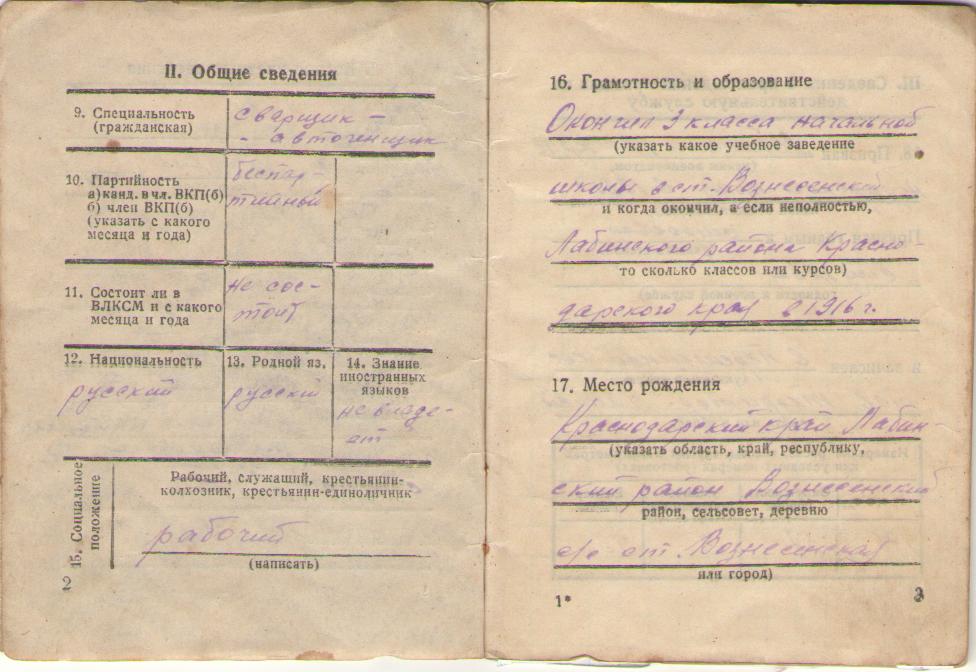 II. Общие сведения
9. Специальность
(гражданская)
сварщик –
- автогенщик
10. Партийность
а) канд. в чл. ВКП(б)
б) член ВКП(б)
(указать с какого
месяца и года)
беспар-
тийный
11. Состоит ли в
ВЛКСМ и с какого
месяца и года
не сос-
тоит
12. Национальность
русский
13. Родной яз.
русский
14. Знание
иностранных
языков
не владе-
ет
15. Социальное
положение
Рабочий, служащий, крестьянин-
колхозник, крестьянин-единоличник
рабочий
(написать)
2
16. Грамотность и образование
Окончил 3 класса начальной
(указать какое учебное заведение
школы в ст. Вознесенской
и когда окончил, а если неполностью,
Лабинского района Красно
то сколько классов или курсов)
дарского края в 1916 г.
17. Место рождения
Краснодарский край Лабин
(указать область, край, республику,
ский район Вознесенский
район, сельсовет, деревню
с/с ст Вознесенская
или город)
1*
3